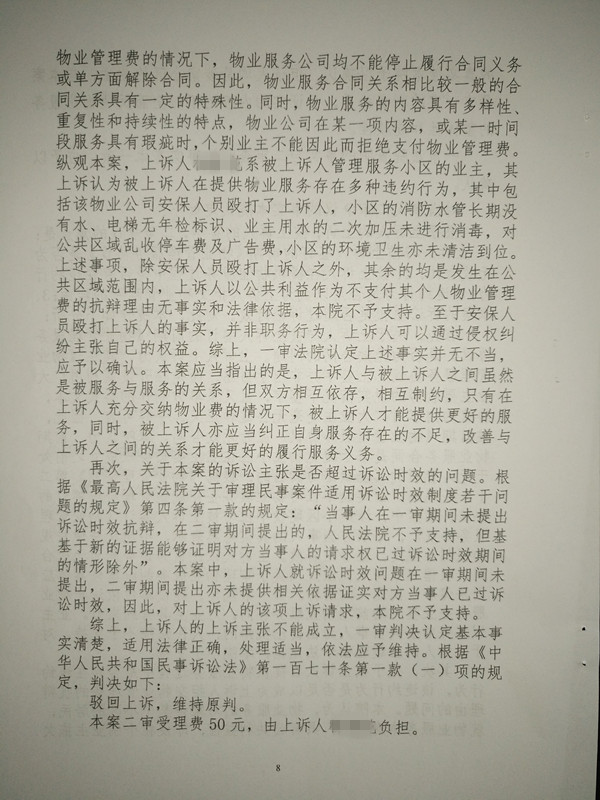 物业管理费的情况下，物业服务公司均不能停止履行合同义务
或单方面解除合同。因此，物业服务合同关系相比较一般的合
同关系具有一定的特殊性。同时，物业服务的内容具有多样性、
重复性和持续性的特点，物业公司在某一项内容，或某一时间
段服务具有瑕疵时，个别业主不能因此而拒绝支付物业管理费。
纵观本案，上诉人 系被上诉人管理服务小区的业主，其
上诉认为被上诉人在提供物业服务存在多种违约行为，其中包
括该物业公司安保人员殴打了上诉人，小区的消防水管长期没
有水、电梯无年检标识、业主用水的二次加压未进行消毒，对
公共区域乱收停车费及广告费，小区的环境卫生亦未清洁到位。
上述事项，除安保人员殴打上诉人之外，其余的均是发生在公
共区域范围内，上诉人以公共利益作为不支付其个人物业管理
费的抗辩理由无事实和法律依据，本院不予支持。至于安保人
员殴打上诉人的事实，并非职务行为，上诉人可以通过侵权纠
纷主张自己的权益。综上，一审法院认定上述事实并无不当，
应予以确认。本案应当指出的是，上诉人与被上诉人之间虽然
是被服务与服务的关系，但双方相互依存，相互制约，只有在
上诉人充分交纳物业费的情况下，被上诉人才能提供更好的服
务，同时，被上诉人亦应当纠正自身服务存在的不足，改善与
上诉人之间的关系才能更好的履行服务义务。
再次，关于本案的诉讼主张是否超过诉讼时效的问题。根
据《最高人民法院关于审理民事案件适用诉讼时效制度若干问
题的规定》第四条第一款的规定：“当事人在一审期间未提出
诉讼时效抗辩，在二审期间提出的，人民法院不予支持，但基
基于新的证据能够证明对方当事人的请求权已过诉讼时效期间
的情形除外”。本案中，上诉人就诉讼时效问题在一审期间未
提出，二审期间提出亦未提供相关依据证实对方当事人已过诉
讼时效，因此，对上诉人的该项上诉请求，本院不予支持。
综上，上诉人的上诉主张不能成立，一审判决认定基本事
实清楚，适用法律正确，处理适当，依法应予维持。根据《中
华人民共和国民事诉讼法》第一百七十条第一款（一）项的规
定，判决如下：
驳回上诉，维持原判。
本案二审受理费50元，由上诉人 负担。
8